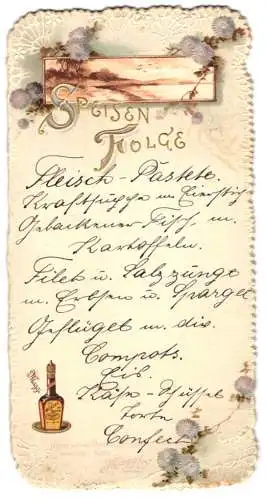 SPEISEN
FOLGE
Fleisch-Pastete.
Kraftsuppe m Eierstich
Gebackener Fisch m.
Kartoffeln.
Filet u. Salzzunge
m. Erbsen u. Spargel
Geflügel m. div.
Compots.
Eis.
Käse-Schüssel
Torte
Confect